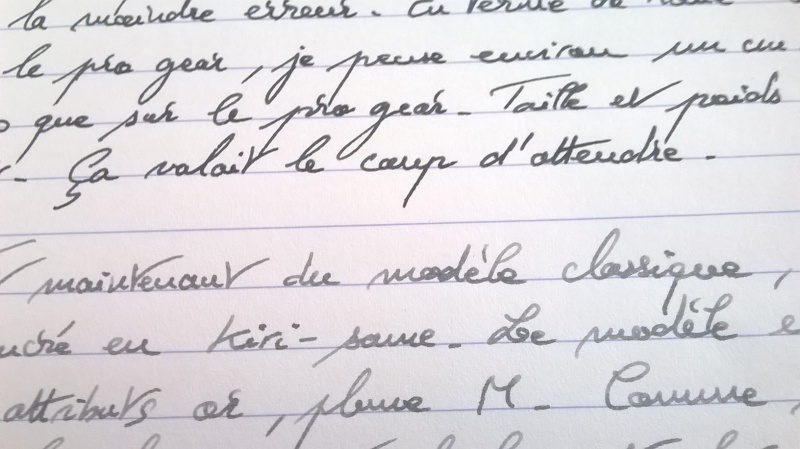 la moindre erreur. En terme de
le pro gear, je pense environ un cm
que sur le pro gear. Taille et poids
Ça valait le coup d'attendre.
maintenant du modèle classique,
en Kiri-same. Le modèle
attributs or, plume M. Comme,